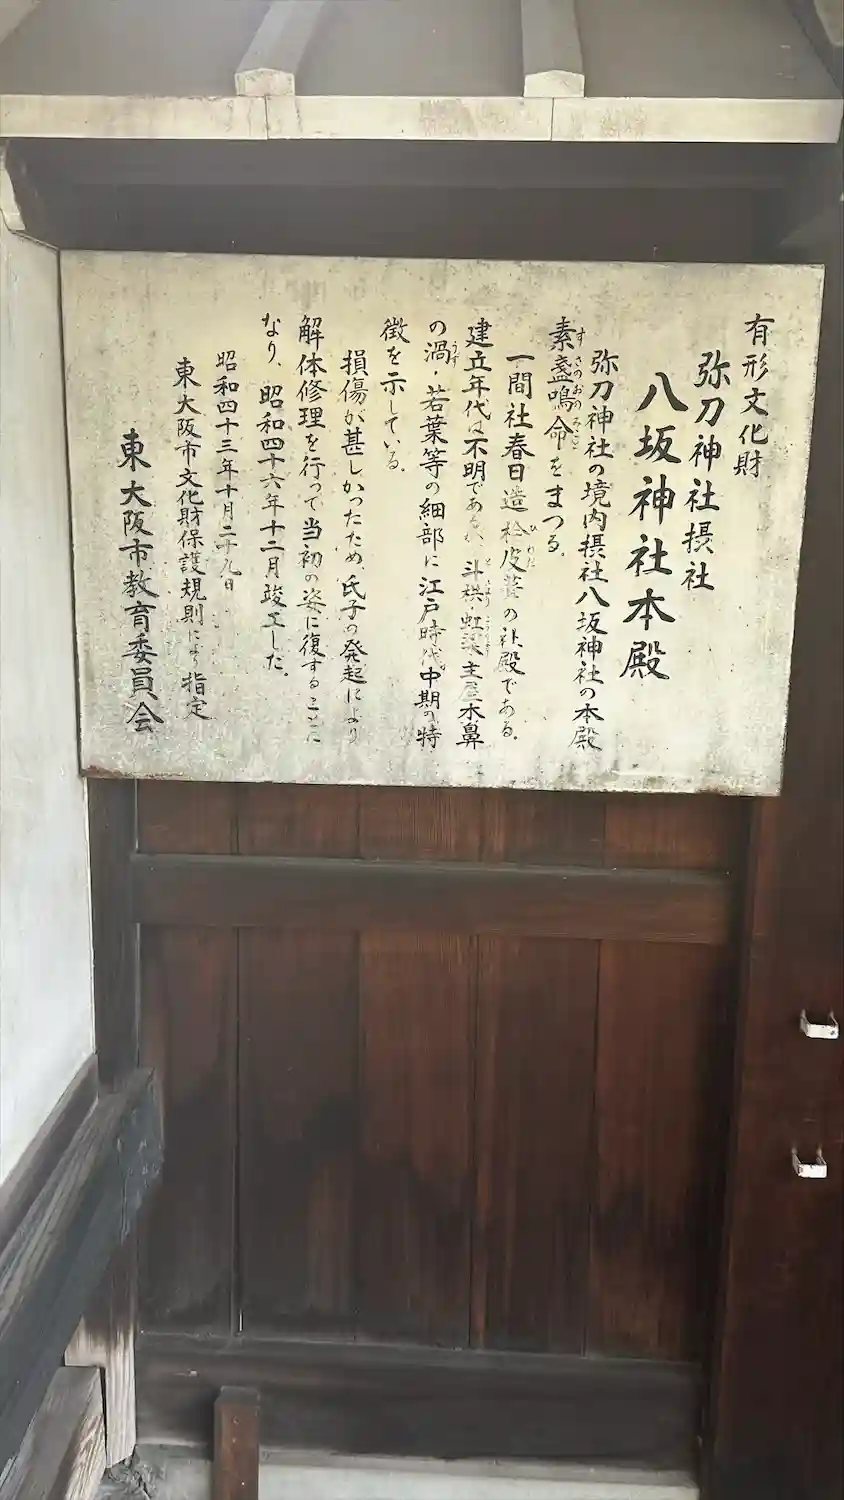 有形文化財
弥刀神社摂社
八坂神社本殿
弥刀神社の境内摂社八坂神社の本殿
素盞鳴命をまつる。
すさのおのみこと
一間社春日造桧皮葺の社殿である。
ひわだ
建立年代は不明であるが、斗栱・虹梁・主屋木鼻
の渦・若葉等の細部に江戸時代中期の特
うず
徴を示している。
損傷が甚しかったため、氏子の発起により
解体修理を行って当初の姿に復することに
なり、昭和四十六年十二月竣工した。
昭和四十三年十月二十九日
東大阪市文化財保護規則により指定
東大阪市教育委員会